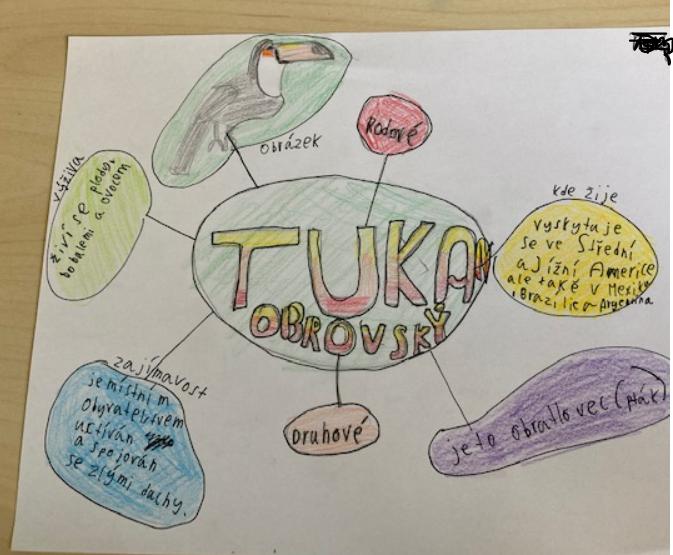 obrázek
Rodové
výživa
živí se plody,
bobulemi a ovocem
TUKAN
OBROVSKÝ
kde žije
vyskytuje
se ve Střední
a Jižní Americe
ale také v Mexiku
, Brazílie a Argentina
zajímavost
je místním
obyvatelstvem
uctíván
a spojován
se zlými duchy.
Druhové
je to obratlovec (pták)